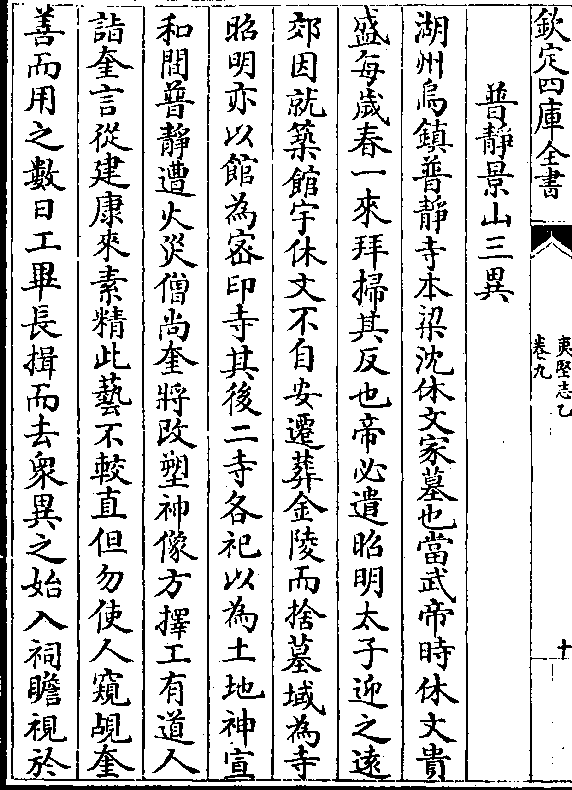 欽定四庫全書
夷堅志乙
卷九
十
普靜景山三異
湖州烏鎮普靜寺本梁沈休文家墓也當武帝時休文貴
盛每歲春一來拜掃其反也帝必遣昭明太子迎之遠
郊因就築館宇休文不自安遷葬金陵而捨墓域為寺
昭明亦以館為宻印寺其後二寺各祀以為土地神宣
和間普靜遭火災僧尚奎將改塑神像方擇工有道人
詣奎言從建康來素精此藝不較直但勿使人窺覘奎
善而用之數日工畢長揖而去衆異之始入祠瞻視於